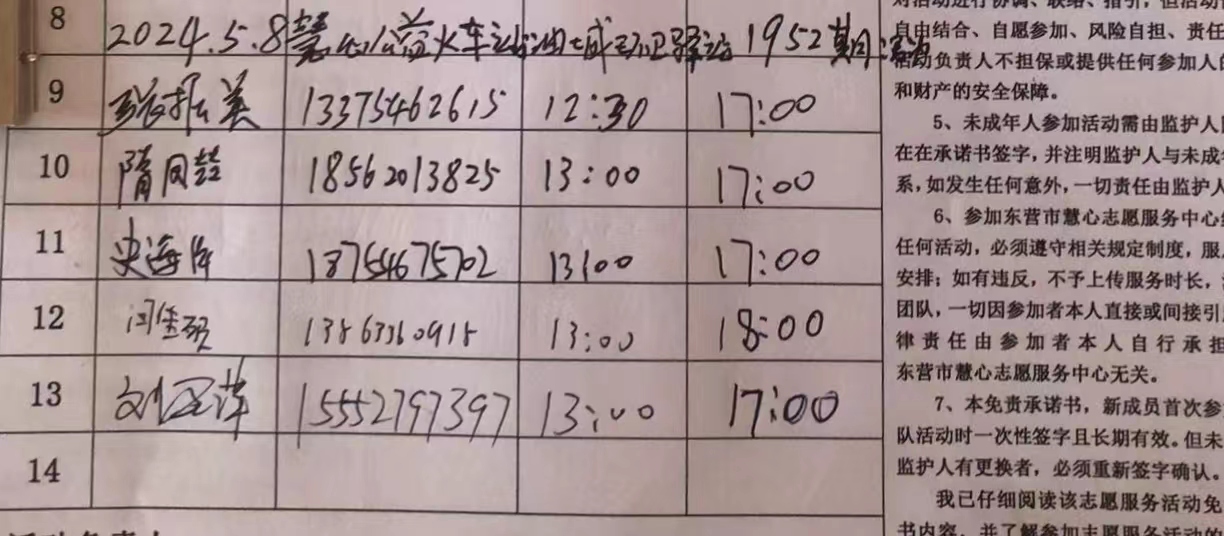 8
2024.5.8慧心公益火车站油城环卫驿站1952期活动
9 张振美 13375462615 12:30 17:00
10 隋同 18562013825 13:00 17:00
11 史海 18754675702 13:00 17:00
12 闫 13:00 18:00
13 刘 15552797397 13:00 17:00
14
对活动进行协调、联络、指引,但活动
自由结合、自愿参加、风险自担、责任
活动负责人不担保或提供任何参加人的
和财产的安全保障。
5、未成年人参加活动需由监护人
在在承诺书签字,并注明监护人与未成年
系,如发生任何意外,一切责任由监护人
6、参加东营市慧心志愿服务中心
任何活动,必须遵守相关规定制度,服
安排;如有违反,不予上传服务时长,
团队,一切因参加者本人直接或间接引
律责任由参加者本人自行承担
东营市慧心志愿服务中心无关。
7、本免责承诺书,新成员首次参
队活动时一次性签字且长期有效。但未
监护人有更换者,必须重新签字确认。
我已仔细阅读该志愿服务活动免
书内容,并了解参加志愿服务活动的